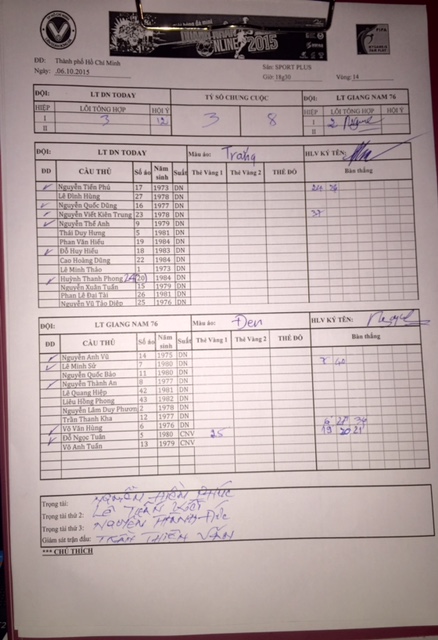 ONLINE 2015
ĐD: Thành phố Hồ Chí Minh
Ngày: .06.10.2015
Sân: SPORT PLUS
Giờ: 18g30 Vòng: 14
ĐỘI: LT DN TODAY TỶ SỐ CHUNG CUỘC ĐỘI: LT GIANG NAM 76
HIỆP LỖI TỔNG HỢP HỘI Ý HIỆP LỖI TỔNG HỢP HỘI Ý
I 3 3 8 I 2
II II
ĐỘI: LT DN TODAY Màu áo: Trắng HLV KÝ TÊN:
DD CẦU THỦ Số áo Năm sinh Suất Thẻ Vàng 1 Thẻ Vàng 2 THẺ ĐỎ Bàn thắng
Nguyễn Tiến Phú 17 1973 DN
Lê Đình Hùng 27 1978 DN
Nguyễn Quốc Dũng 16 1977 DN
Nguyễn Viết Kiên Trung 23 1978 DN 37
Nguyễn Thế Anh 9 1979 DN
Thái Duy Hưng 5 1981 DN
Phan Văn Hiếu 19 1984 DN
Đỗ Huy Hiếu 18 1983 DN
Cao Hoàng Dũng 22 1984 DN
Lê Minh Thảo 1 1973 DN
Huỳnh Thanh Phong (20) 1984 DN
Nguyễn Xuân Tuấn 15 1979 DN
Phan Lê Đại Tài 26 1981 DN
Nguyễn Vũ Tảo Diệp 25 1976 DN
ĐỘI: LT GIANG NAM 76 Màu áo: Đen HLV KÝ TÊN:
DD CẦU THỦ Số áo Năm sinh Suất Thẻ Vàng 1 Thẻ Vàng 2 THẺ ĐỎ Bàn thắng
Nguyễn Anh Vũ 14 1975 DN
Lê Minh Sử 7 1980 DN
Nguyễn Quốc Bảo 11 1980 DN
Nguyễn Thành An 8 1977 DN
Lê Quang Hiệp 42 1981 DN
Liêu Hồng Phong 43 1982 DN
Nguyễn Lâm Duy Phương 2 1978 DN
Trần Thanh Kha 12 1977 DN
Võ Văn Hùng 6 1976 DN
Đỗ Ngọc Tuấn 5 1980 CNV 25 19 20 21
Võ Anh Tuấn 13 1979 CNV
Trọng tài:
Trọng tài thứ 2:
Trọng tài thứ 3:
Giám sát trận đấu:
*** CHÚ THÍCH